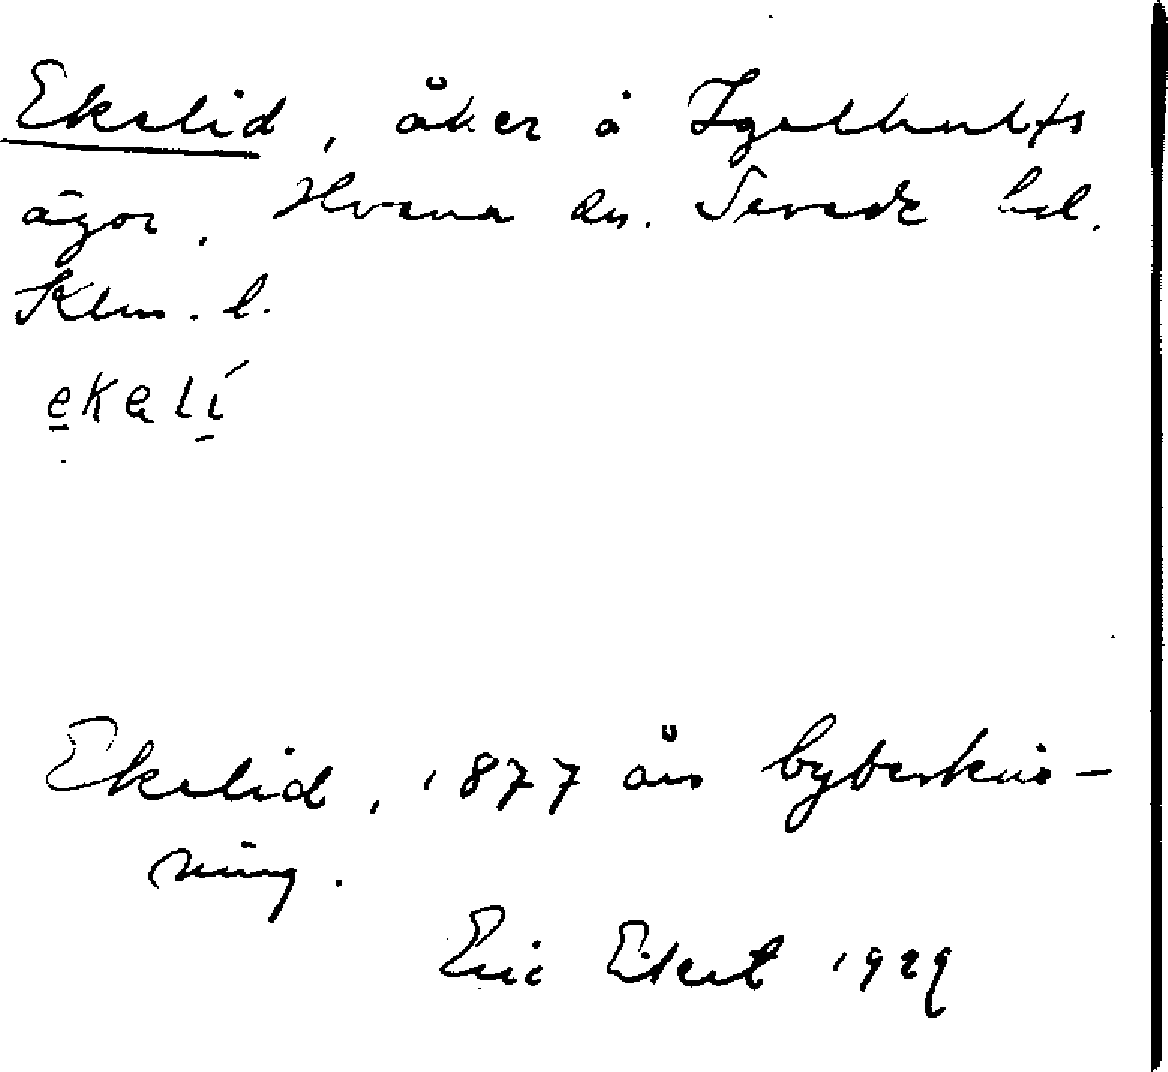 Ekelid, åker å Igelhults
ägor. Hvena sn. Sevede hd.
Klm. l.
ekalí
Ekelid, 1877 års bybeskriv-
ning.
Eric Elkert 1929